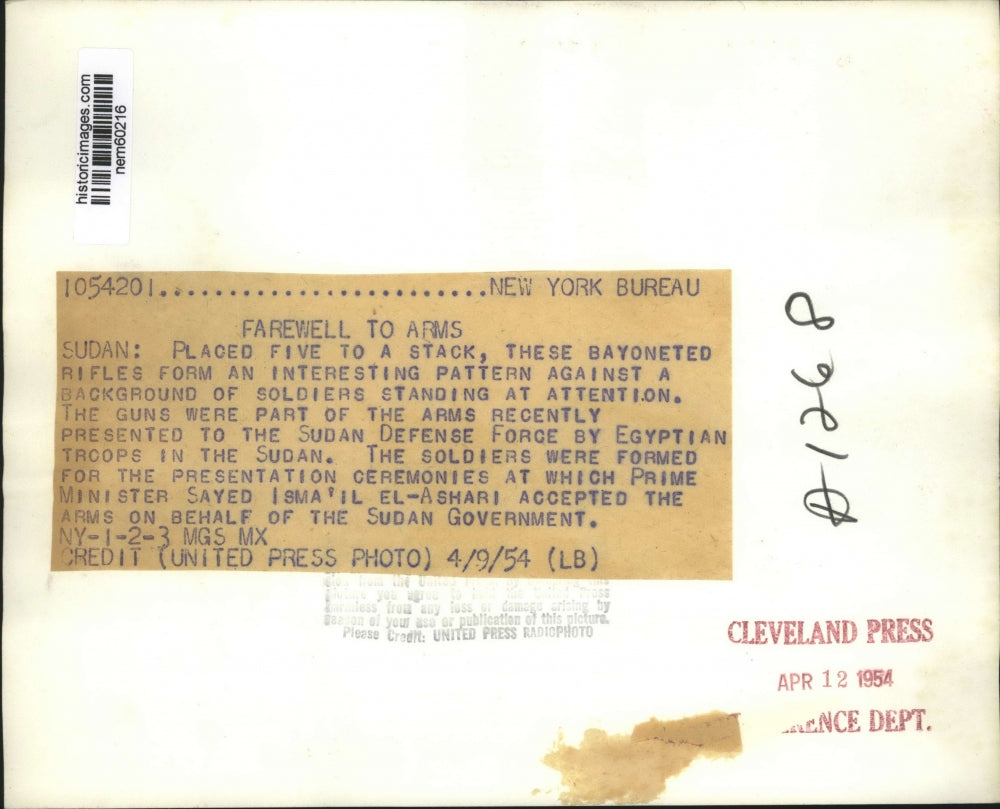 historicimages.com
nem60216
1054201.........................NEW YORK BUREAU
FAREWELL TO ARMS
SUDAN: PLACED FIVE TO A STACK, THESE BAYONETED
RIFLES FORM AN INTERESTING PATTERN AGAINST A
BACKGROUND OF SOLDIERS STANDING AT ATTENTION.
THE GUNS WERE PART OF THE ARMS RECENTLY
PRESENTED TO THE SUDAN DEFENSE FORCE BY EGYPTIAN
TROOPS IN THE SUDAN. THE SOLDIERS WERE FORMED
FOR THE PRESENTATION CEREMONIES AT WHICH PRIME
MINISTER SAYED ISMA'IL EL-ASHARI ACCEPTED THE
ARMS ON BEHALF OF THE SUDAN GOVERNMENT.
NY-1-2-3 MGS MX
CREDIT (UNITED PRESS PHOTO) 4/9/54 (LB)
from the United
picture you agree to hold the United Press
harmless from any loss or damage arising by
reason of your use or publication of this picture.
Please Credit: UNITED PRESS RADIOPHOTO
A-1268
CLEVELAND PRESS
APR 12 1954
ENCE DEPT.